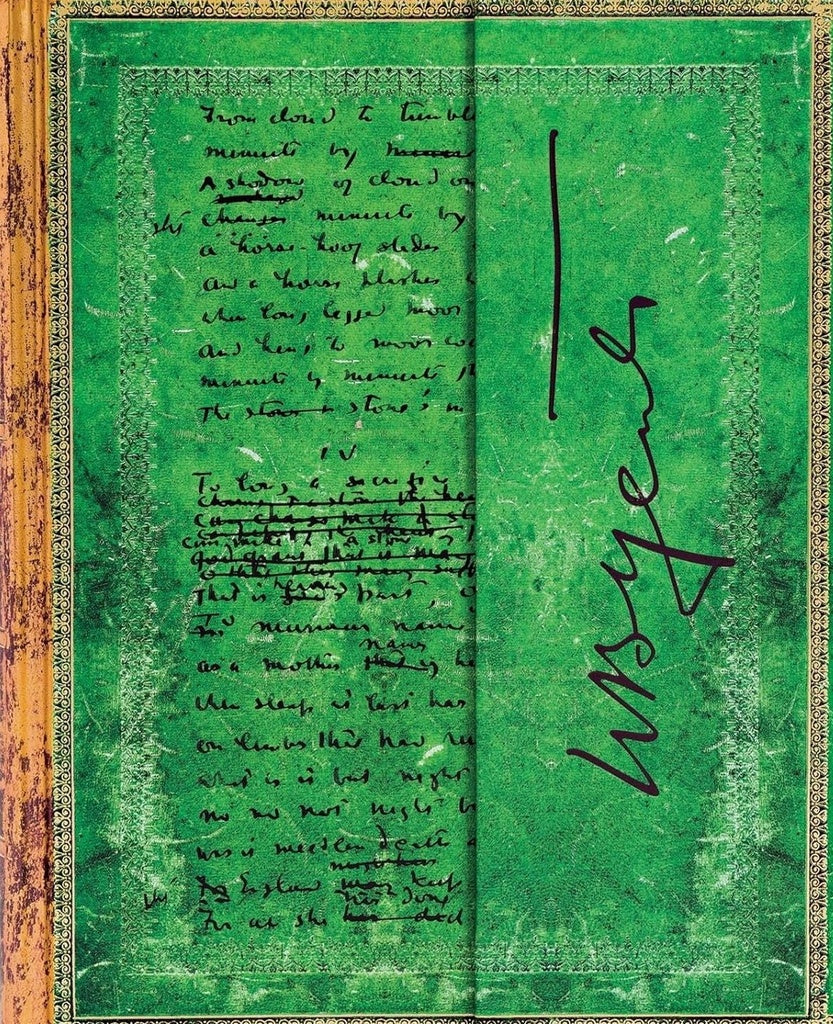 From cloud to tumbl
minute by minute
A shadow of cloud on
changes minute by
a horse-hoof slides
and a horse plashes
when long legged moor
and hens to moor co
minute by minute
The stone stone's m
IV
To long a sacrifice
can make a sto
a stone
That is heaven's part,
To murmur name
name
as a mother he
when sleep at last has
on limbs that had ru
what is it but night
no no not night b
was it needless death a
England keep
For all she did
WB Yeats